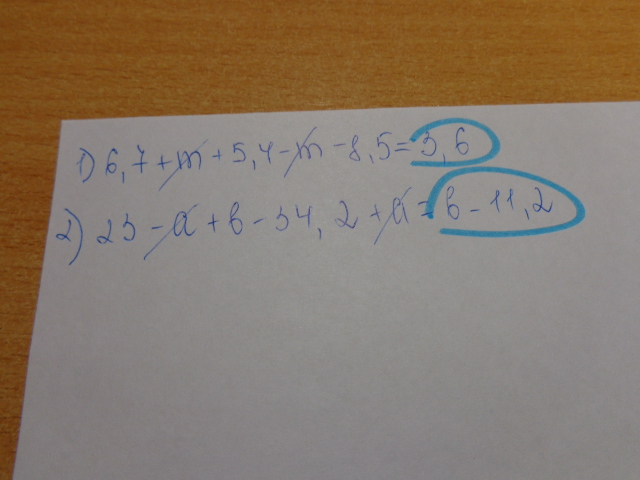 1) 6,7 + m + 5,4 - m - 8,5 = 3,6
2) 23 - a + b - 34,2 + a = b - 11,2